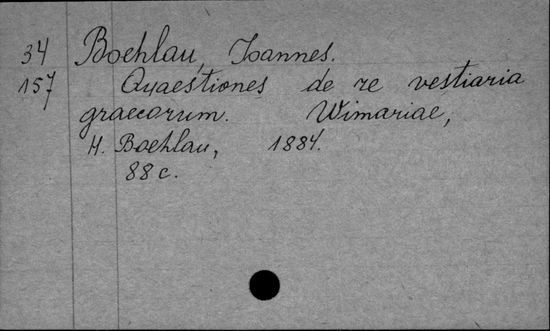 34 Boehlau, Ioannes.
157 Quaestiones de re vestiaria
graecorum. Wimariae,
H. Boehlau, 1884.
88 c.